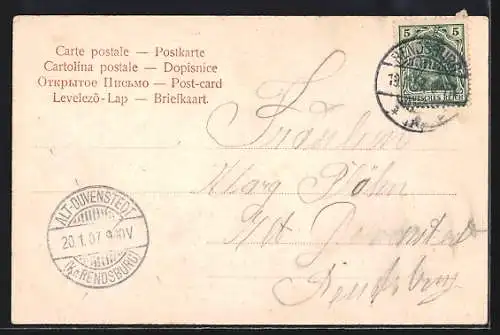 Carte postale — Postkarte
Cartolina postale — Dopisnice
Открытое Письмо — Post-card
Levelező-Lap — Briefkaart.
5 5
RENDSBURG
DEUTSCHES REICH
ALT-DUVENSTEDT
20.1.07. V
(Kr. RENDSBURG)
Fräulein
Marg
Alt Duvenstedt
Rendsburg